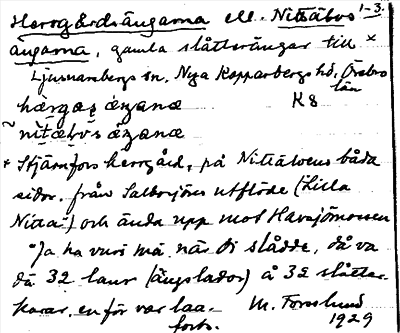 Herrgårdsängarna el. Nittälvs 1-3.
ängarna, gamla slåtterängar till ×
Ljusnarsbergs sn. Nya Kopparbergs hd, Örebro
län
K8
× Stjärnfors herrgård, på Nittälvens båda
sidor, från Salbosjöns utflöde (Lilla
Nitta-) och ända upp mot Havsjömossen
"Ja ha vuri må, när di slådde, då va
dä 32 laur (ängslador) å 32 slåtter-
karar, en för var laa-
forts.
M. Forslund
1929